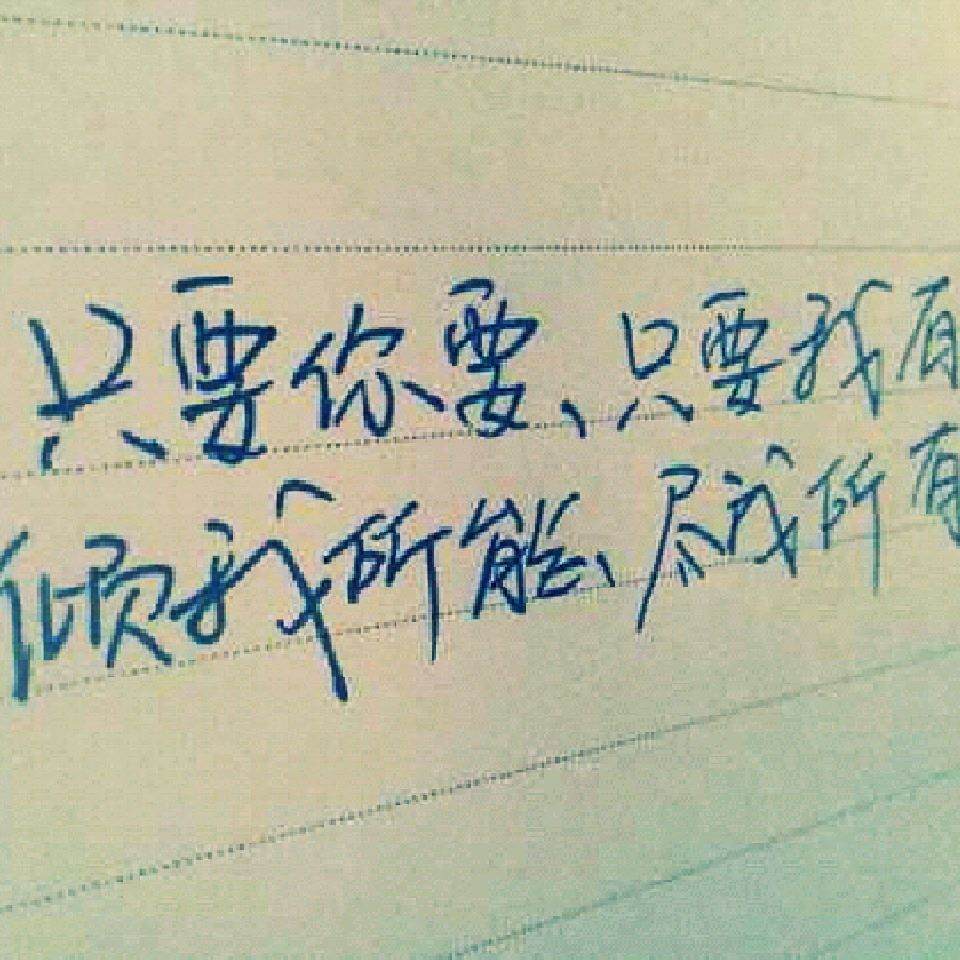 只要你要、只要我有
倾我所能、尽我所有